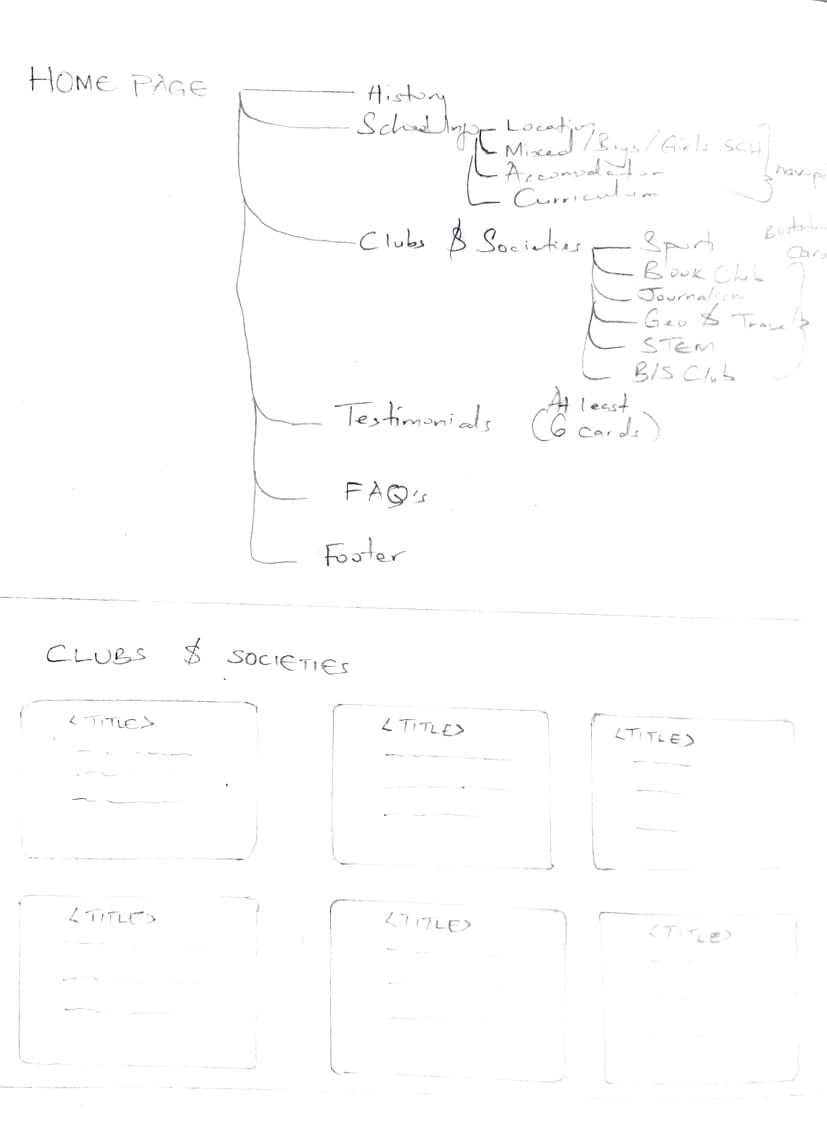 HOME PAGE
History
School Info
Location
Mixed / Boys / Girls SCH
Accomodation
Curriculum
nav-pi
Clubs & Societies
Sports
Book Club
Journalism
Geo & Travel
STEM
B/S Club
Card
Testimonials
At least
(6 cards)
FAQ's
Footer
CLUBS & SOCIETIES
<TITLE> <TITLE> <TITLE>
<TITLE> <TITLE> <TITLE>